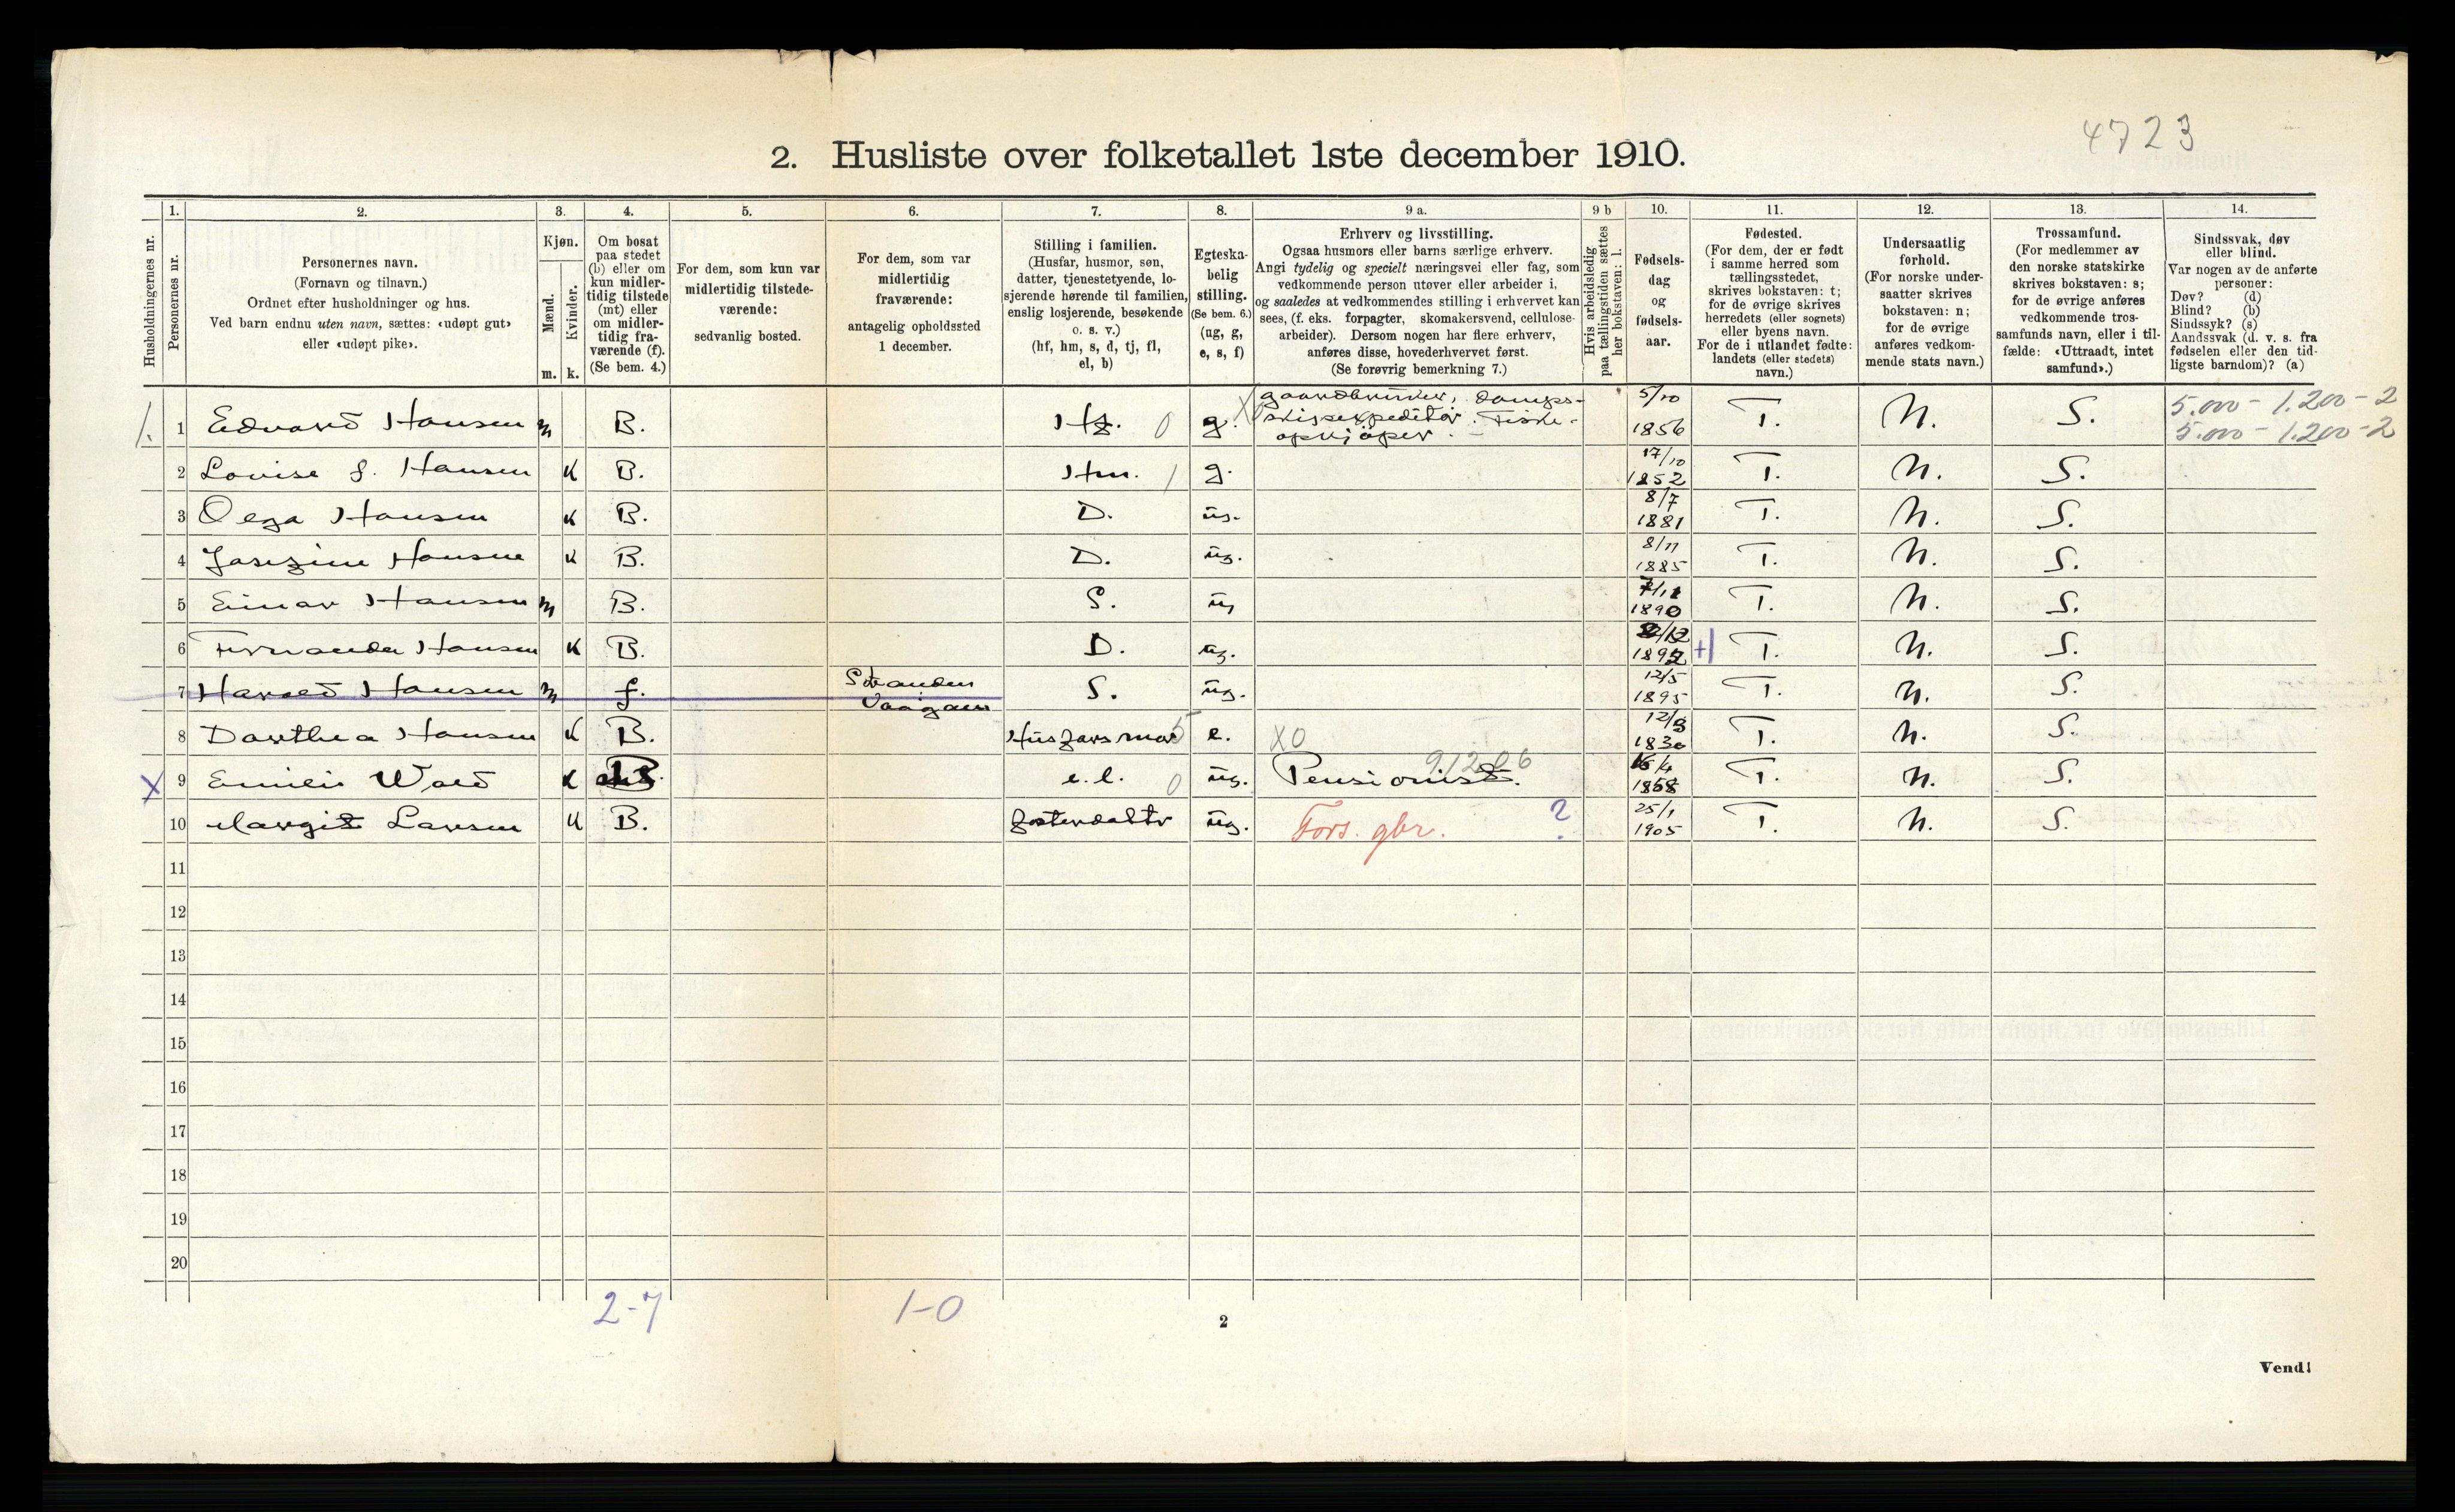 4723
2. Husliste over folketallet 1ste december 1910.
Husholdningernes nr.
1. Personernes nr.
2. Personernes navn.
(Fornavn og tilnavn.)
Ordnet efter husholdninger og hus.
Ved barn endnu uten navn, sættes: «udøpt gut»
eller «udøpt pike».
3. Kjøn.
Mænd. m.
Kvinder. k.
4. Om bosat
paa stedet
(b) eller om
kun midler-
tidig tilstede
(mt) eller
om midler-
tidig fra-
værende (f).
(Se bem. 4.)
5. For dem, som kun var
midlertidig tilstede-
værende:
sedvanlig bosted.
6. For dem, som var
midlertidig
fraværende:
antagelig opholdssted
1 december.
7. Stilling i familien.
(Husfar, husmor, søn,
datter, tjenestetyende, lo-
sjerende hørende til familien,
enslig losjerende, besøkende
o. s. v.)
(hf, hm, s, d, tj, fl,
el, b)
8. Egteska-
belig
stilling.
(Se bem. 6.)
(ug, g,
e, s, f)
9 a. Erhverv og livsstilling.
Ogsaa husmors eller barns særlige erhverv.
Angi tydelig og specielt næringsvei eller fag, som
vedkommende person utøver eller arbeider i,
og saaledes at vedkommendes stilling i erhvervet kan
sees, (f. eks. forpagter, skomakersvend, cellulose-
arbeider). Dersom nogen har flere erhverv,
anføres disse, hovederhvervet først.
(Se forøvrig bemerkning 7.)
9 b Hvis arbeidsledig
paa tællingstiden sættes
her bokstaven: l.
10. Fødsels-
dag
og
fødsels-
aar.
11. Fødested.
(For dem, der er født
i samme herred som
tællingsstedet,
skrives bokstaven: t;
for de øvrige skrives
herredets (eller sognets)
eller byens navn.
For de i utlandet fødte:
landets (eller stedets)
navn.)
12. Undersaatlig
forhold.
(For norske under-
saatter skrives
bokstaven: n;
for de øvrige
anføres vedkom-
mende stats navn.)
13. Trossamfund.
(For medlemmer av
den norske statskirke
skrives bokstaven: s;
for de øvrige anføres
vedkommende tros-
samfunds navn, eller i til-
fælde: «Uttraadt, intet
samfund».)
14. Sindssvak, døv
eller blind.
Var nogen av de anførte
personer:
Døv? (d)
Blind? (b)
Sindssyk? (s)
Aandssvak (d. v. s. fra
fødselen eller den tid-
ligste barndom)? (a)
1. 1 Edvard Hansen m B. Hf. 0 g. X gaardbruker, damps-
skipsexpeditör. Fiske-
opkjöper. 5/10 1856 T. N. S. 5.000 - 1.200 - 2
5.000 - 1.200 - 2
2 Lovise J. Hansen K B. Hm. 1 g. 17/10 1852 T. N. S.
3 Olga Hansen K B. D. ug. 8/7 1881 T. N. S.
4 Josefine Hansen K B. D. ug. 8/11 1885 T. N. S.
5 Einar Hansen m B. S. ug 1890 T. N. S.
6 Fernanda Hansen K B. D. ug. 1892 T. N. S.
7 Harald Hansen m f. Stranden
Vaagan S. ug. 12/5 1895 T. N. S.
8 Dorthea Hansen K B. Husfars mor 5 e. X0 12/9 1830 T. N. S.
X 9 Emilie Wold K B. e.l. 0 ug. Pensionist. 91206 1858 T. N. S.
10 Margit Larsen K B. fosterdattr ug. Fors. gbr. ? 25/1 1905 T. N. S.
11
12
13
14
15
16
17
18
19
20
2-7 1-0
2
Vend!